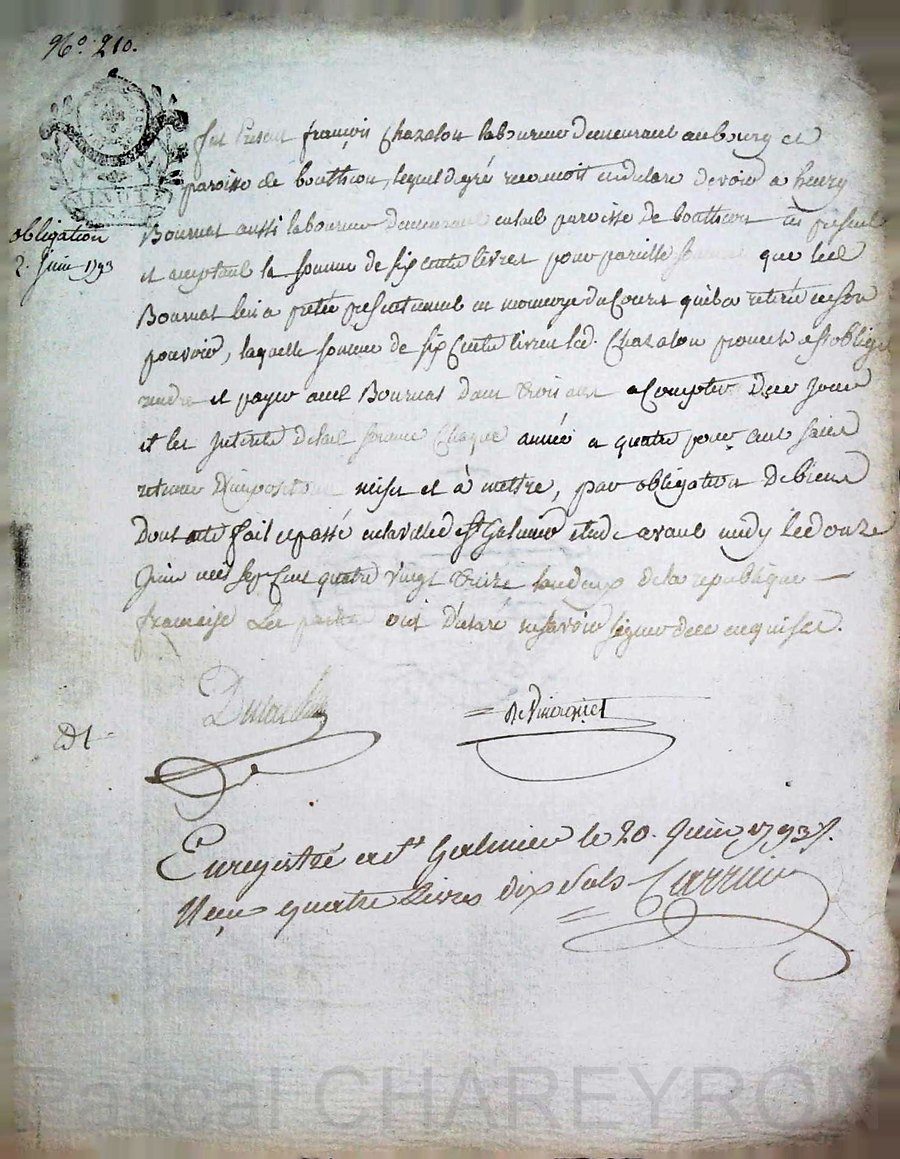 No. 210.
MINUTE
obligation
2. Juin 1793
fut Présent françois Chazalon laboureur demeurant au bourg et
paroisse de bouthéon, lequel de gré reconnoit et déclare devoir a henry
Bournat aussi laboureur demeurant paroisse de bouthéon présent
et acceptant la somme de six cents livres pour pareille somme que led
Bournat lui a prêtée présentement en monnoye du Cours qu'il a retirée en son
pouvoir, laquelle somme de six Cents livres led. Chazalon promet et s'oblige
rendre et payer aud Bournat dans trois ans a Compter De ce jour
et les Interets de lad somme Chaque année a quatre pour cent sans
retenue D'imposition mises et à mettre, par obligation De biens
Dont acte fait et passé en la ville de St Galmier étude avant midy le douze
Juin mil sept Cent quatre vingt treize l'an deux de la republique
francaise Les parties ont déclaré ne savoir signer de ce enquises.
Enregistré a St Galmier le 20. Juin 1793
Reçu quatre Livres dix Sols
Pascal CHAREYRON